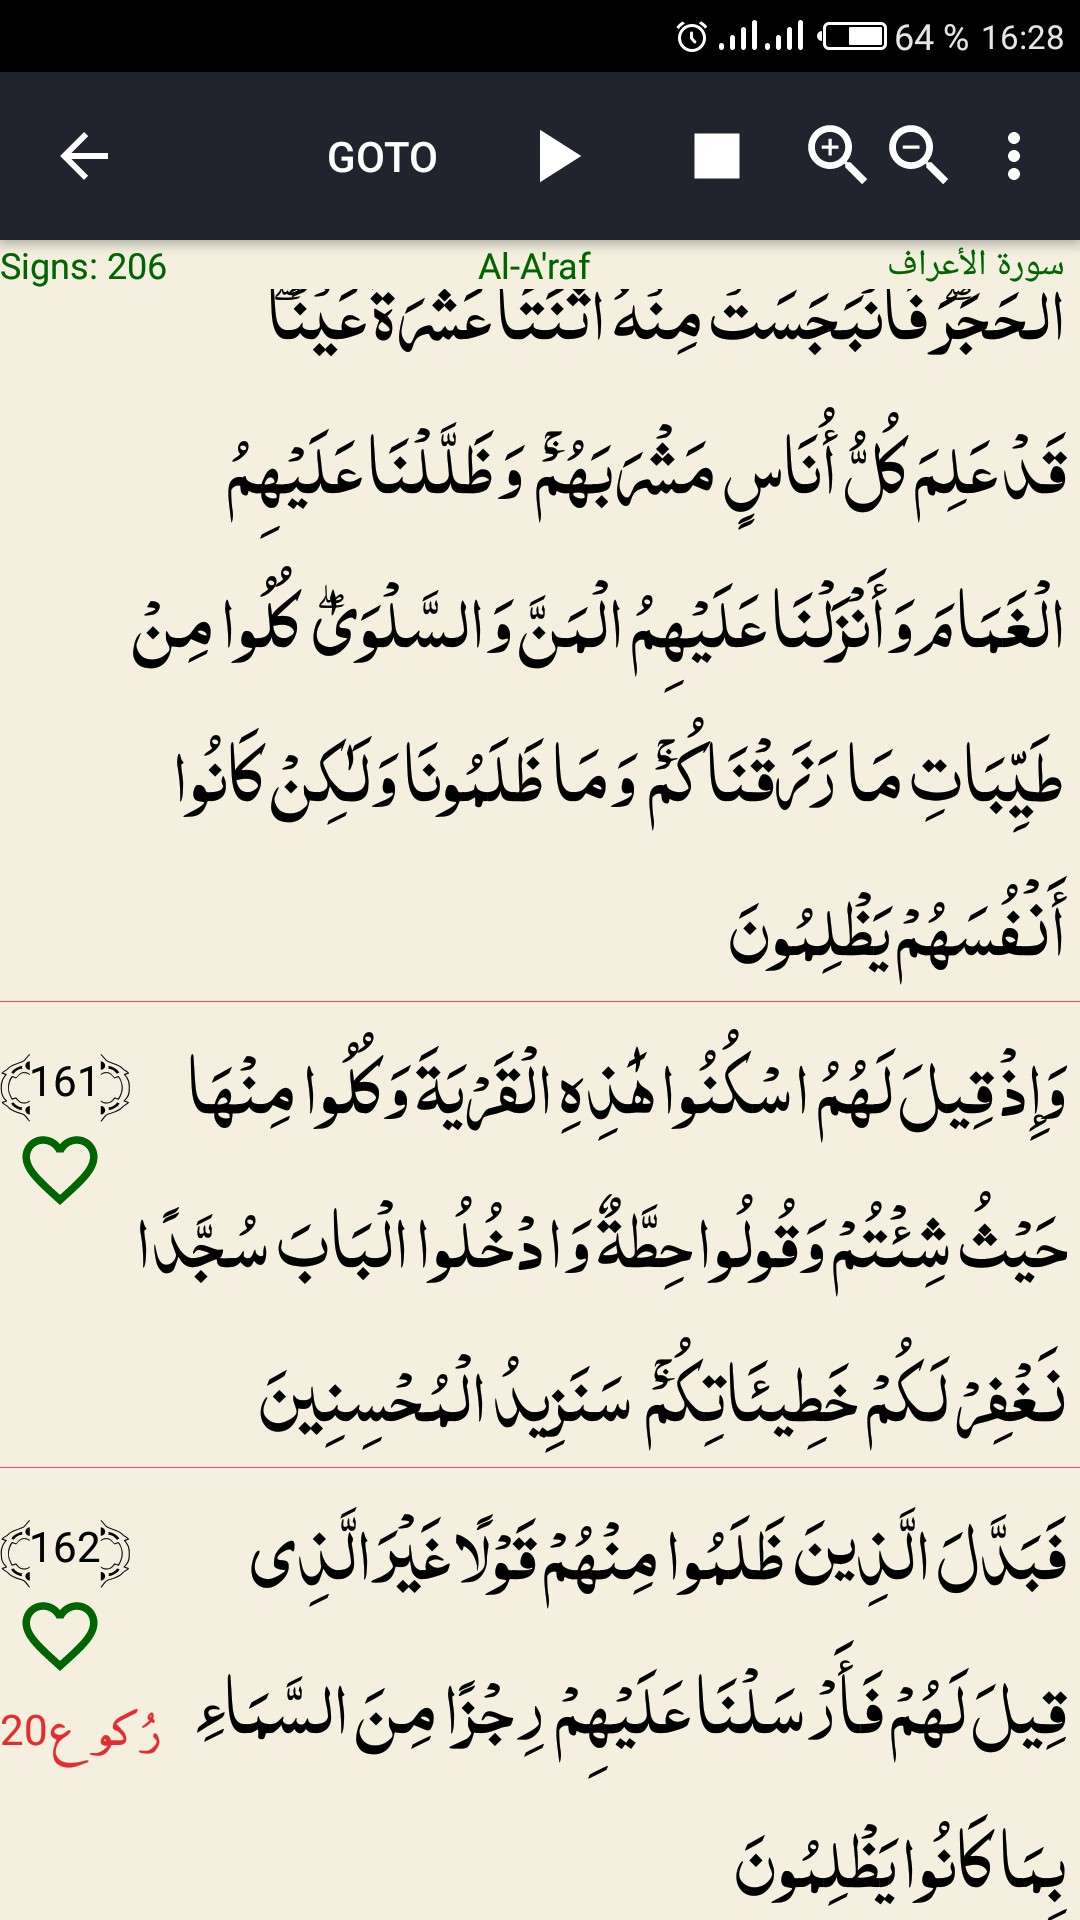 64 % 16:28
GOTO
Signs: 206 Al-A'raf سورة الأعراف
الْحَجَرَ ۖ فَانْبَجَسَتْ مِنْهُ اثْنَتَا عَشْرَةَ عَيْنًا ۖ
قَدْ عَلِمَ كُلُّ أُنَاسٍ مَشْرَبَهُمْ ۚ وَظَلَّلْنَا عَلَيْهِمُ
الْغَمَامَ وَأَنْزَلْنَا عَلَيْهِمُ الْمَنَّ وَالسَّلْوَىٰ ۖ كُلُوا مِنْ
طَيِّبَاتِ مَا رَزَقْنَاكُمْ ۚ وَمَا ظَلَمُونَا وَلَٰكِنْ كَانُوا
أَنْفُسَهُمْ يَظْلِمُونَ
وَإِذْ قِيلَ لَهُمُ اسْكُنُوا هَٰذِهِ الْقَرْيَةَ وَكُلُوا مِنْهَا 161
حَيْثُ شِئْتُمْ وَقُولُوا حِطَّةٌ وَادْخُلُوا الْبَابَ سُجَّدًا
نَغْفِرْ لَكُمْ خَطِيئَاتِكُمْ ۚ سَنَزِيدُ الْمُحْسِنِينَ
فَبَدَّلَ الَّذِينَ ظَلَمُوا مِنْهُمْ قَوْلًا غَيْرَ الَّذِي 162
قِيلَ لَهُمْ فَأَرْسَلْنَا عَلَيْهِمْ رِجْزًا مِنَ السَّمَاءِ رُكوع20
بِمَا كَانُوا يَظْلِمُونَ